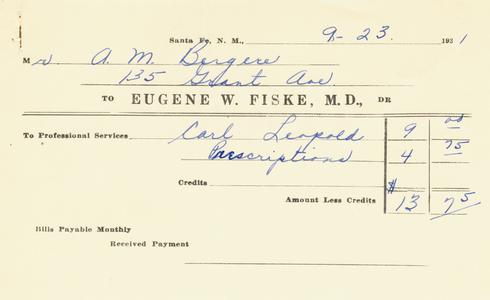 Santa Fe, N. M., 9-23. 1931
Mr. A. M. Bergere
135 Grant Ave.
TO EUGENE W. FISKE, M.D., DR
To Professional Services Carl Leopold 9 00
Prescriptions 4 75
Credits
Amount Less Credits $13 75
Bills Payable Monthly
Received Payment